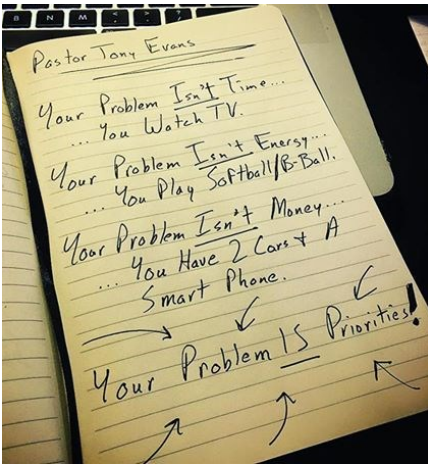 B N M
Pastor Tony Evans
Your Problem Isn't Time...
... You Watch TV.
Your Problem Isn't Energy...
... You Play Softball/B-Ball.
Your Problem Isn't Money...
... You Have 2 Cars + A
Smart Phone.
Your Problem IS Priorities!